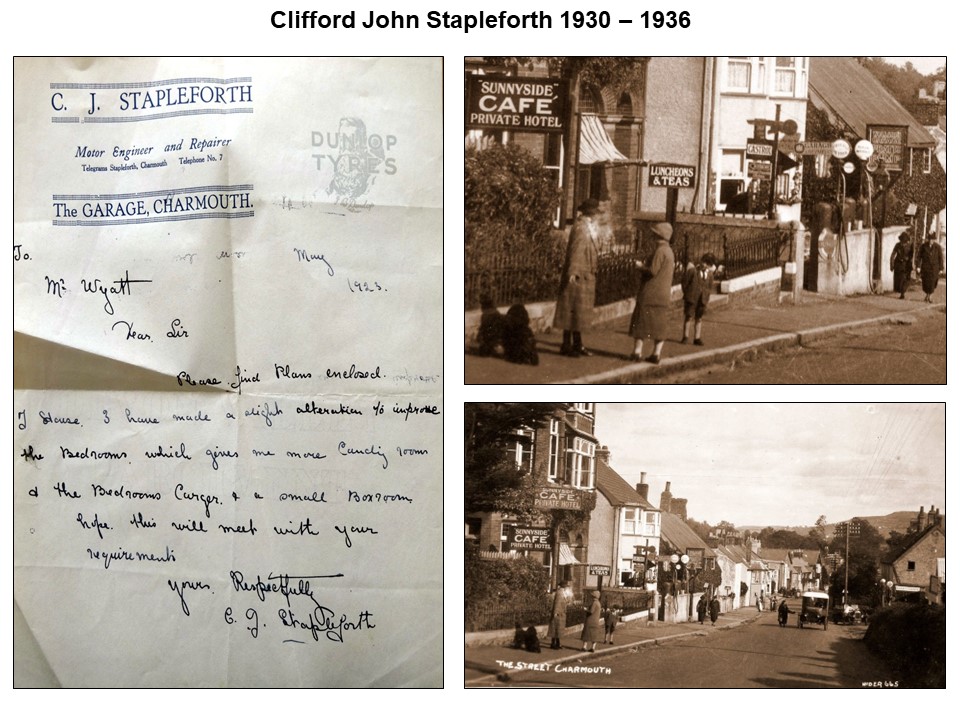 Clifford John Stapleforth 1930 – 1936
C. J. STAPLEFORTH
Motor Engineer and Repairer
Telegrams Stapleforth, Charmouth Telephone No. 7
The GARAGE, CHARMOUTH.
DUNLOP
TYRES
To.
May
Mr Wyatt
1923.
Dear Sir
Please find Plans enclosed.
House. I have made a slight alteration to improve
the Bedrooms, which gives me more Landing room
& the Bedrooms Larger, & a small Boxroom,
hope this will meet with your
requirements
Yours Respectfully
C. J. Stapleforth
"SUNNYSIDE"
CAFÉ
PRIVATE HOTEL
LUNCHEONS
& TEAS
CASTROL
SUNNYSIDE
CAFE
PRIVATE HOTEL
SUNNYSIDE
CAFE
PRIVATE HOTEL
LUNCHEONS
& TEAS
THE STREET CHARMOUTH